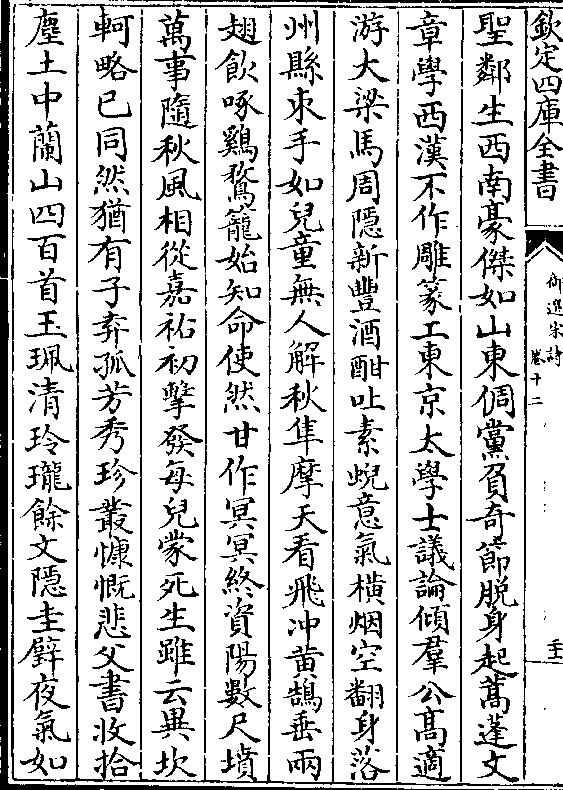 欽定四庫全書
御選宋詩
卷十二
二十一
聖鄰生西南豪傑如山東倜黨負奇節脱身起蒿蓬文
章學西漢不作雕篆工東京太學士議論傾羣公高適
游大梁馬周隱新豐酒酣吐素蜺意氣横烟空翻身落
州縣束手如兒童無人解秋隼摩天看飛冲黄鵠垂兩
翅飲啄鷄鶩籠始知命使然甘作冥冥終資陽數尺墳
萬事隨秋風相從嘉祐初擊發每兒蒙死生雖云異坎
軻略已同然猶有子弃孤芳秀珍叢慷慨悲父書收拾
塵土中蘭山四百首玉珮清玲瓏餘文隱圭璧夜氣如